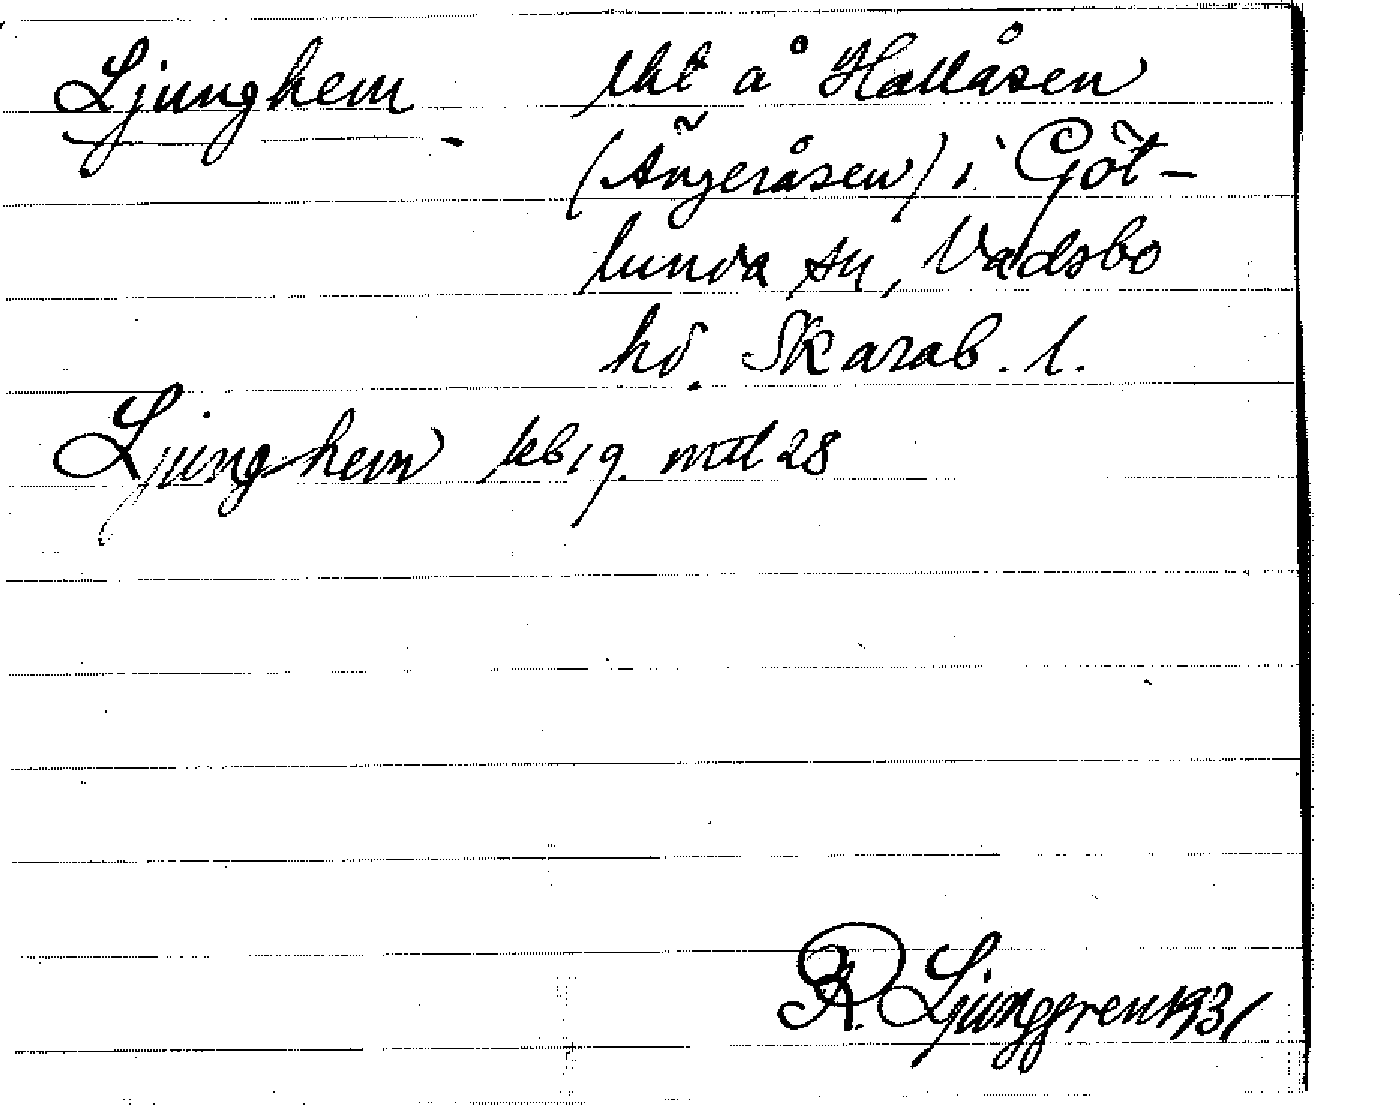 Ljunghem lht å Hallåsen
(Ängeråsen) i Göt-
lunda sn, Vadsbo
hd. Skarab. l.
Ljunghem kb 19. mtl 28
R. Ljunggren 1931